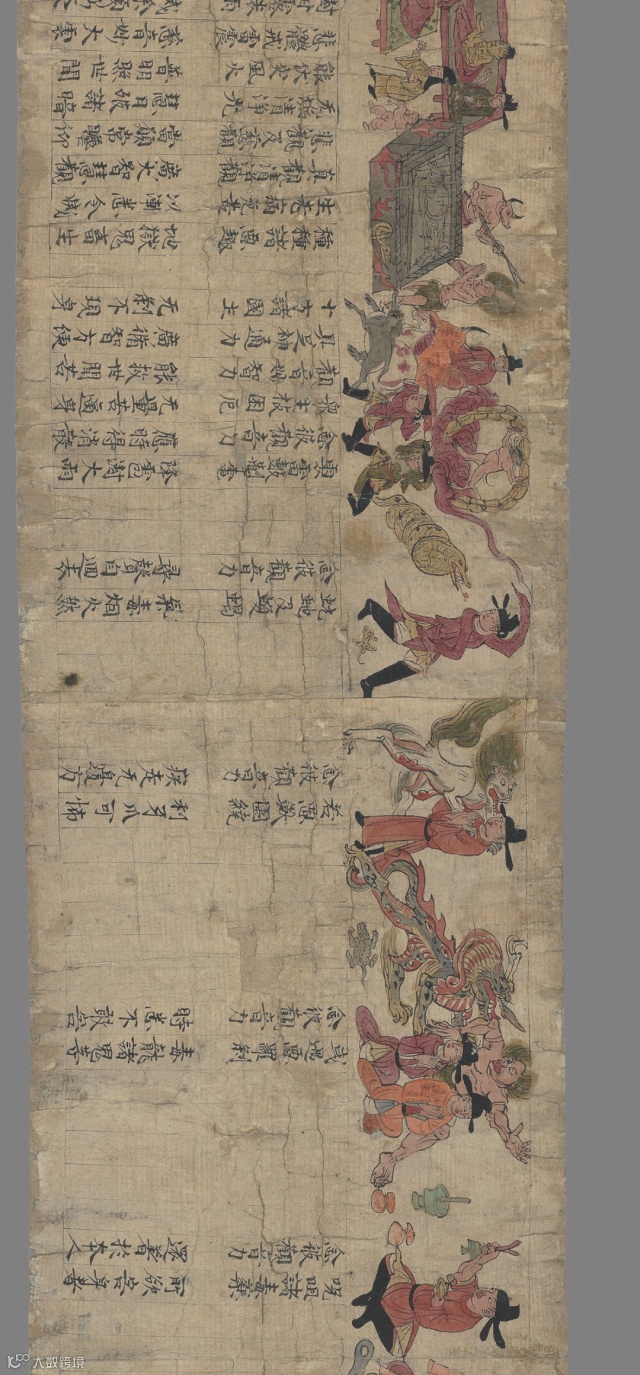 呪咀諸毒藥 所欲害身者
念彼觀音力 還著於本人
或遇惡羅剎 毒龍諸鬼等
念彼觀音力 時悉不敢害
若惡獸圍繞 利牙爪可怖
念彼觀音力 疾走无邊方
蚖蛇及蝮蝎 氣毒烟火然
念彼觀音力 尋聲自迴去
雲雷鼓掣電 降雹澍大雨
念彼觀音力 應時得消散
衆生被困厄 无量苦逼身
觀音妙智力 能救世間苦
具足神通力 廣修智方便
十方諸國土 无剎不現身
種種諸惡趣 地獄鬼畜生
生老病死苦 以漸悉令滅
真觀清淨觀 廣大智慧觀
悲觀及慈觀 常願常瞻仰
无垢清淨光 慧日破諸暗
能伏災風火 普明照世間
悲體戒雷震 慈音妙大雲
澍甘露法雨
大数跨境